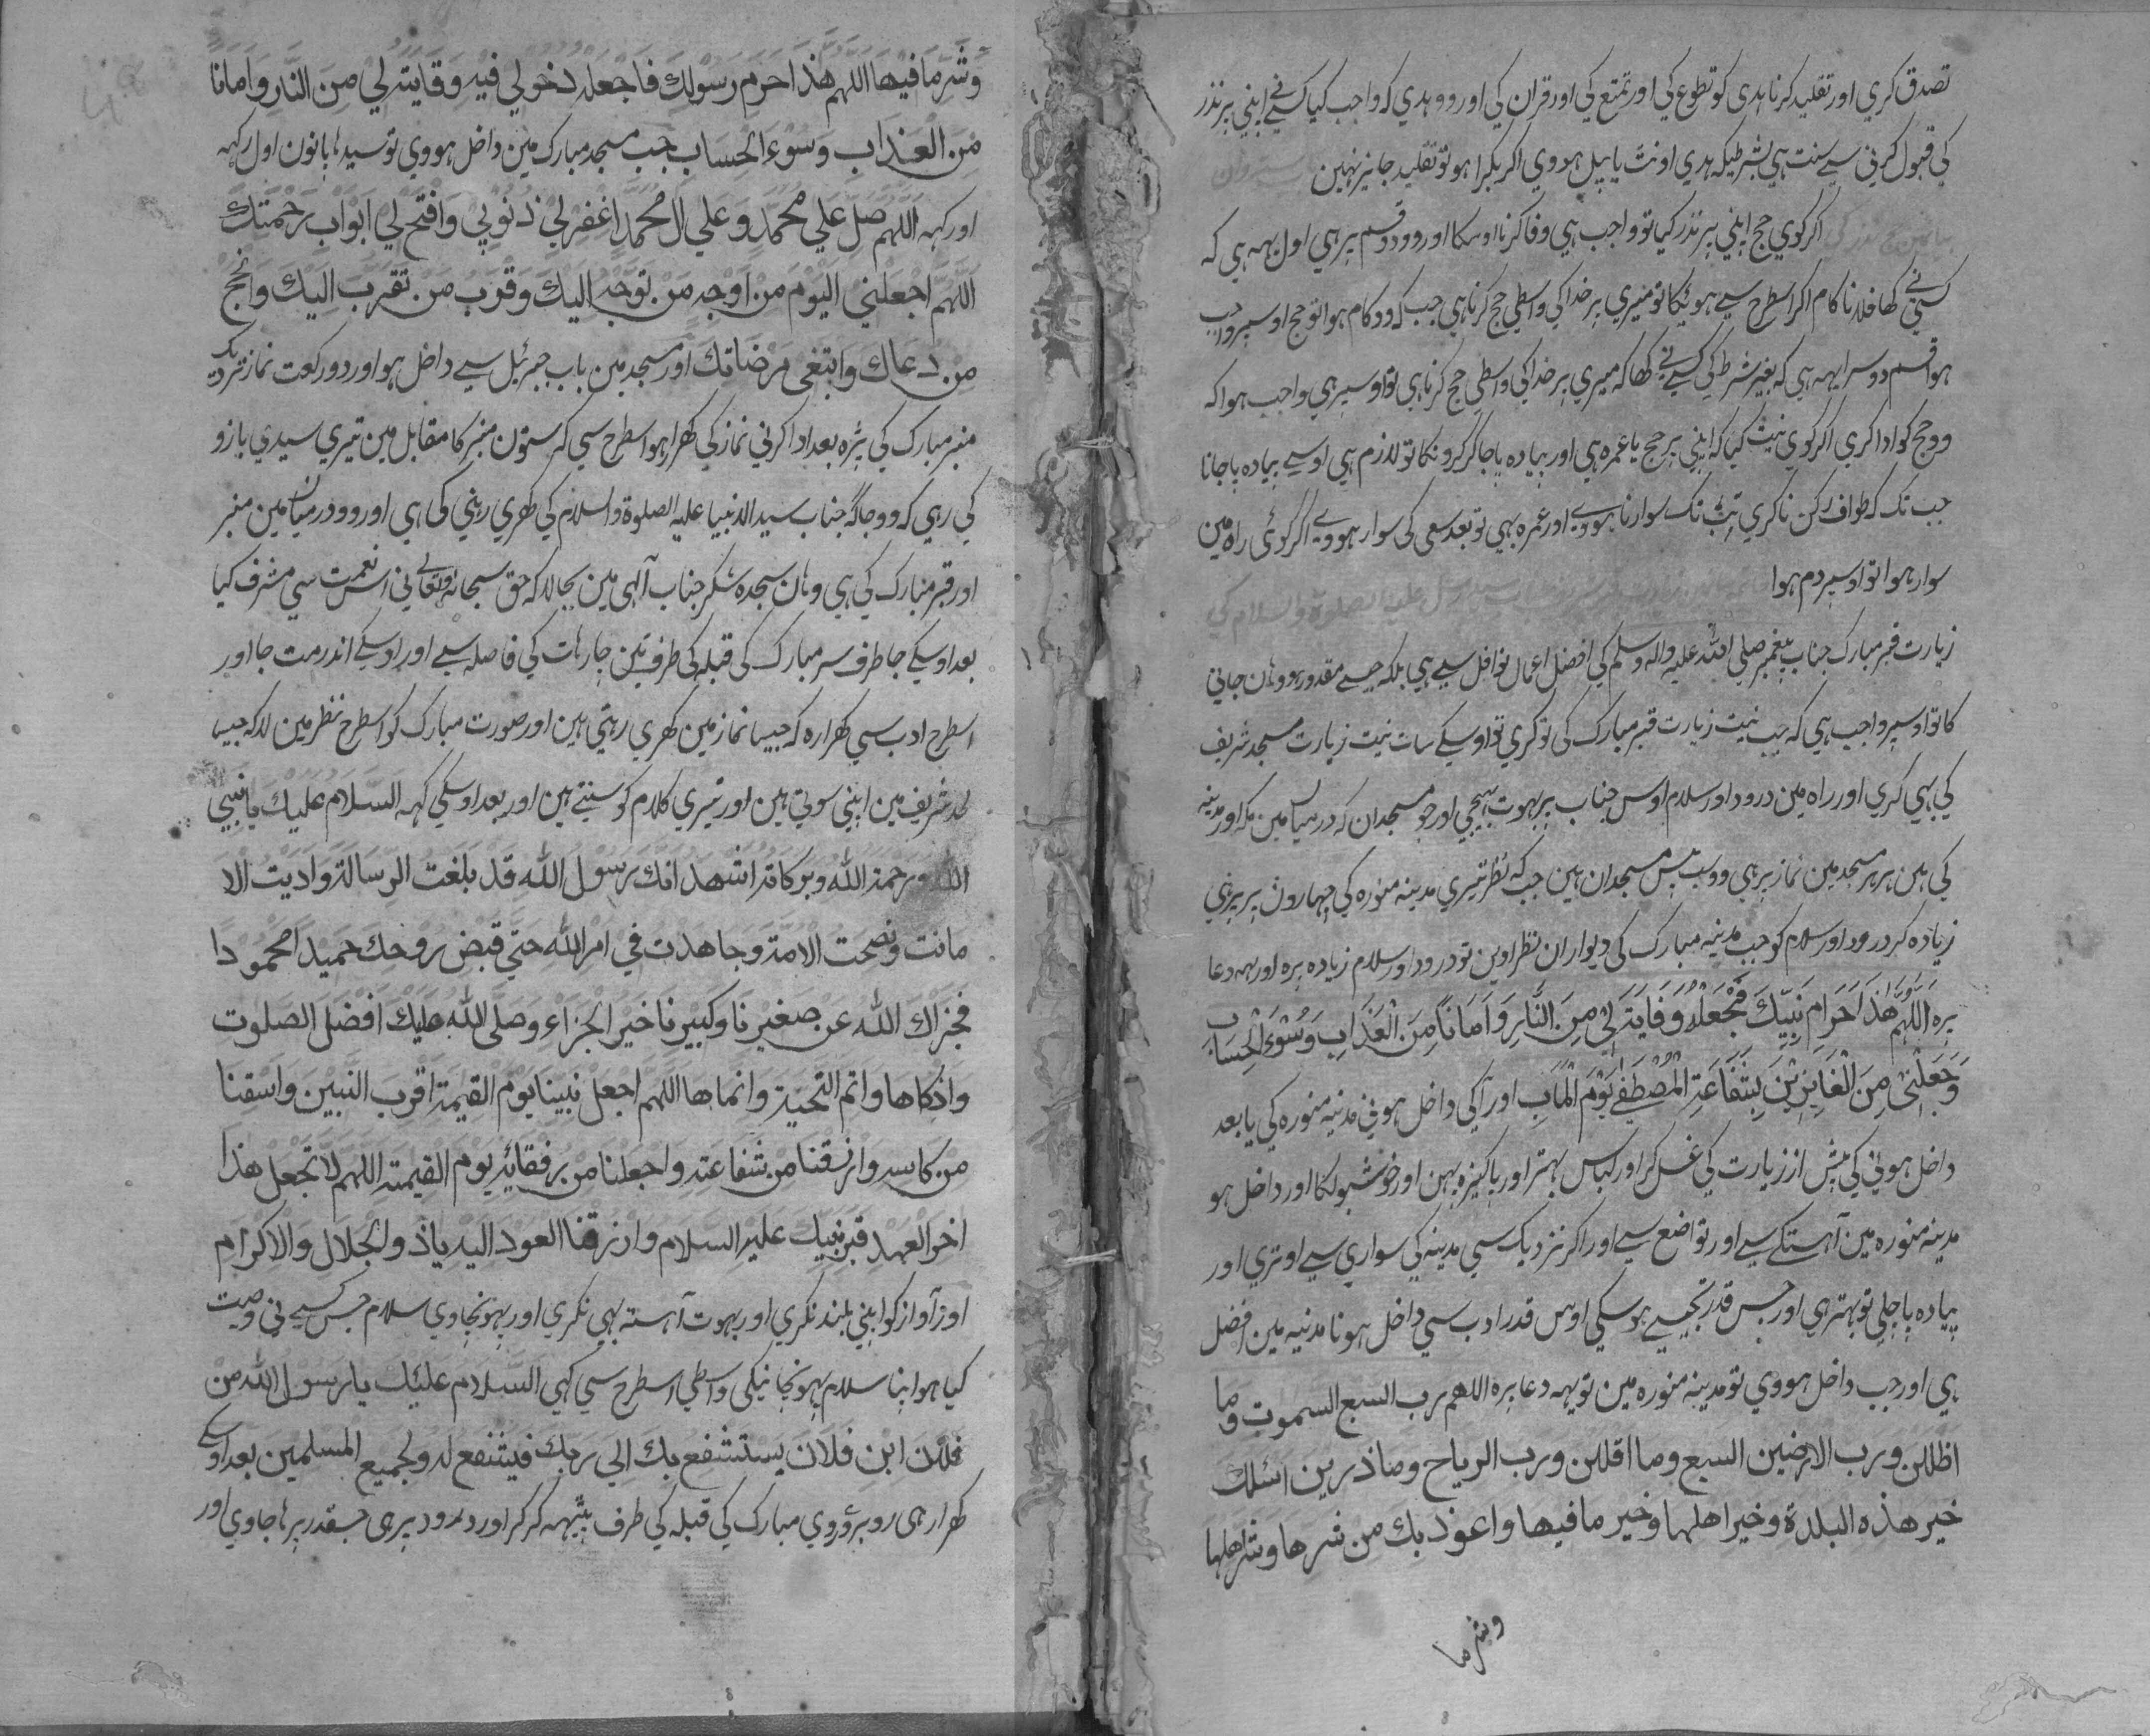 تصدق کری اور تقلید کرنا ہدی کو تطوع کی اور تمتع کی اور قران کی اور وو ہدی کہ واجب کیا کسینے اپنی پر نذر
کی قبول کرنی سے سنت ہی بشرطیکہ ہدی اونٹ یا بیل ہووی اکر بکرا ہو تو تقلید جایز نہین
اکر کوی حج اپنی پر نذر کیا تو واجب ہی وفا کرنا اوسکا اور وو دو قسم پر ہی اول یہہ ہی کہ
کسینے کہا فلانا کام اکر اسطرح سے ہوئیکا تو میری پر خدا کی واسطی حج کرنا ہی جب کہ وو کام ہوا تو حج اوسپر واجب
ہوا قسم دوسرا یہہ ہی کہ بغیر شرط کی کسینے کہا کہ میری پر خدا کی واسطی حج کرنا ہی تو اوسپر ہی واجب ہوا کہ
وو حج کو ادا کری اکر کوی نیت کیا کہ اپنی پر حج یا عمرہ ہی اور پیادہ پا جا کر کرونکا تو لازم ہی اوسے پیادہ پا جانا
جب تک کہ طواف رکن نا کری تب تک سوار نا ہووے اور عمرہ بہی تو بعد سعی کی سوار ہووے اکر کوئی راہ مین
سوار ہوا تو اوسپر دم ہوا
زیارت قبر مبارک جناب پیغمبر صلی الله علیہ واله وسلم کی افضل اعمال نوافل سے ہی بلکہ جسے مقدور ہو وہان جانی
کا تو اوسپر واجب ہی کہ جب نیت زیارت قبر مبارک کی تو کری تو اوسکے سات نیت زیارت مسجد شریف
کی بہی کری اور راہ مین درود اور سلام اوس جناب پر بہوت بہیجی اور جو مسجدان کہ درمیانمین مکہ اور مدینہ
کی ہین ہر ہر مسجد مین نماز پرہی وو سب بیس مسجدان ہین جب کہ نظر تیری مدینہ منورہ کی جہارون پر پڑی
زیادہ کر درود اور سلام کو جب مدینہ مبارک کی دیواران نظر اوین تو درود اور سلام زیادہ پرہ اور یہہ دعا
پرہ اَللّٰهُمَّ هٰذَا حَرَام نَبِيِّكَ فَجْعَلْهُ وَقَايَةً لِيْ مِنَ النَّارِ وَاَمَانًا مِنَ الْعَذَابِ وَسُوْءَ الْحِسَابِ
وَجَعَلْنِيْ مِنَ الْغَايِزِيْنَ بِشَفَاعَةِ الْمُصْطَفٰے يَوْمَ الْمَاٰبِ اور آکی داخل ہونی مدینہ منورہ کی یا بعد
داخل ہونی کی پیش از زیارت کی غسل کر اور لباس بہتر اور پاکیزہ پہن اور خوشبو لکا اور داخل ہو
مدینہ منورہ مین آہستکے سے اور تواضع سے اور اکر نزدیک سی مدینہ کی سواری سے اوتری اور
پیادہ پا چلی تو بہتر ہی اور جس قدر تجہسے ہو سکی اوس قدر ادب سی داخل ہونا مدینہ مین افضل
ہی اور جب داخل ہووی تو مدینہ منورہ مین تو یہہ دعا پرہ اللهم رب السبع السموت وما
اظللن ورب الارضین السبع وما اقللن ورب الریاح وما ذرین اسئلك
خیر هذه البلدة وخیر اهلها وخیر ما فیها واعوذ بك من شرها وشر اهلها
وشر ما
وَشَرِّ مَا فِيْهَا اللّٰهم هٰذَا حَرَم رَسُوْلِكَ فَاجْعَلْ دخولي فيه وقايةً لي مِنَ النَّارِ وَامانًا
مِنَ الْعَذَاب وَسُوْءَ الحِسَابِ جب مسجد مبارک مین داخل ہووی تو سیدہا پانون اول رکہہ
اور کہہ اَللّٰهُم صَلِّ علي مُحَمَّدٍ وَعلي اٰلِ مُحمَّدٍ اغْفِرْ لِيْ ذُنُوْبِيْ وَافتح لي ابواب رحْمَتِكَ
اَللّٰهُمَّ اجعَلْني اليَوْمَ من اوْجه من توجّه اليكَ وَقرب من تقرّب اليك وانجح
من دعاك وابتغى مرضاتك اور مسجد مین باب جبرئیل سے داخل ہو اور دو رکعت نماز نزدیک
منبر مبارک کی پڑہ بعد ادا کرنی نماز کی کہرا ہو اسطرح سی کہ ستون منبر کا مقابل مین تیری سیدی بازو
کی رہی کہ وو جاکہ جناب سید الانبیا علیہ الصلوة والسلام کی کہری رہنی کی ہی اور وو درمیانمین منبر
اور قبر مبارک کی ہی وہان سجدہ شکر جناب آلہی مین بجا لا کہ حق سبحانہ وتعالے نی اس نعمت سی مشرف کیا
بعد اوسکے جا طرف سر مبارک کی قبلہ کی طرف تین چار ہات کی فاصلہ سے اور اوسکے اندر مت جا اور
اسطرح ادب سی کہرا رہ کہ جیسا نماز مین کہری رہتی ہین اور صورت مبارک کو اسطرح نظر مین لا کہ جیسا
لحد شریف مین اپنی سوتی ہین اور تیری کلام کو سنتے ہین اور بعد اوسکی کہہ السَّلَام عَلَيْكَ يَا نَبِيّ
الله ورحمة الله وبركاته اشهد انك رسول الله قد بلغت الرسالة واديت الا
مانت ونصحت الامة وجاهدت في امر الله حتي قبض روحك حميدا محمودا
فجزاك الله عن صغيرنا وكبيرنا خير الجزاء وصلي الله عليك افضل الصلوت
وازكاها واتم التحية وانماها اللهم اجعل نبينا يوم القيمة اقرب النبيين واسقنا
من كاسه وارزقنا من شفاعته واجعلنا من رفقائه يوم القيمة اللهم لا تجعل هذا
اخر العهد قبر نبيك عليه السلام وارزقنا العود اليه ياذ والجلال والاكرام
اور آواز کو اپنی بلند نکری اور بہوت آہستہ بہی نکری اور پہونچاوی سلام جس کسے نی وصیت
کیا ہو اپنا سلام پہونچانیکی واسطی اسطرح سی کہی السَّلام علَيْك يا رسول الله من
فلان ابن فلان یستشفع بك الي ربك فيشفع له ولجميع المسلمين بعد اوسکے
کہرا رہی روبروئی مبارک کی قبلہ کی طرف پیٹہہ کر کر اور درود پرہی جسقدر پرہا جاوی اور